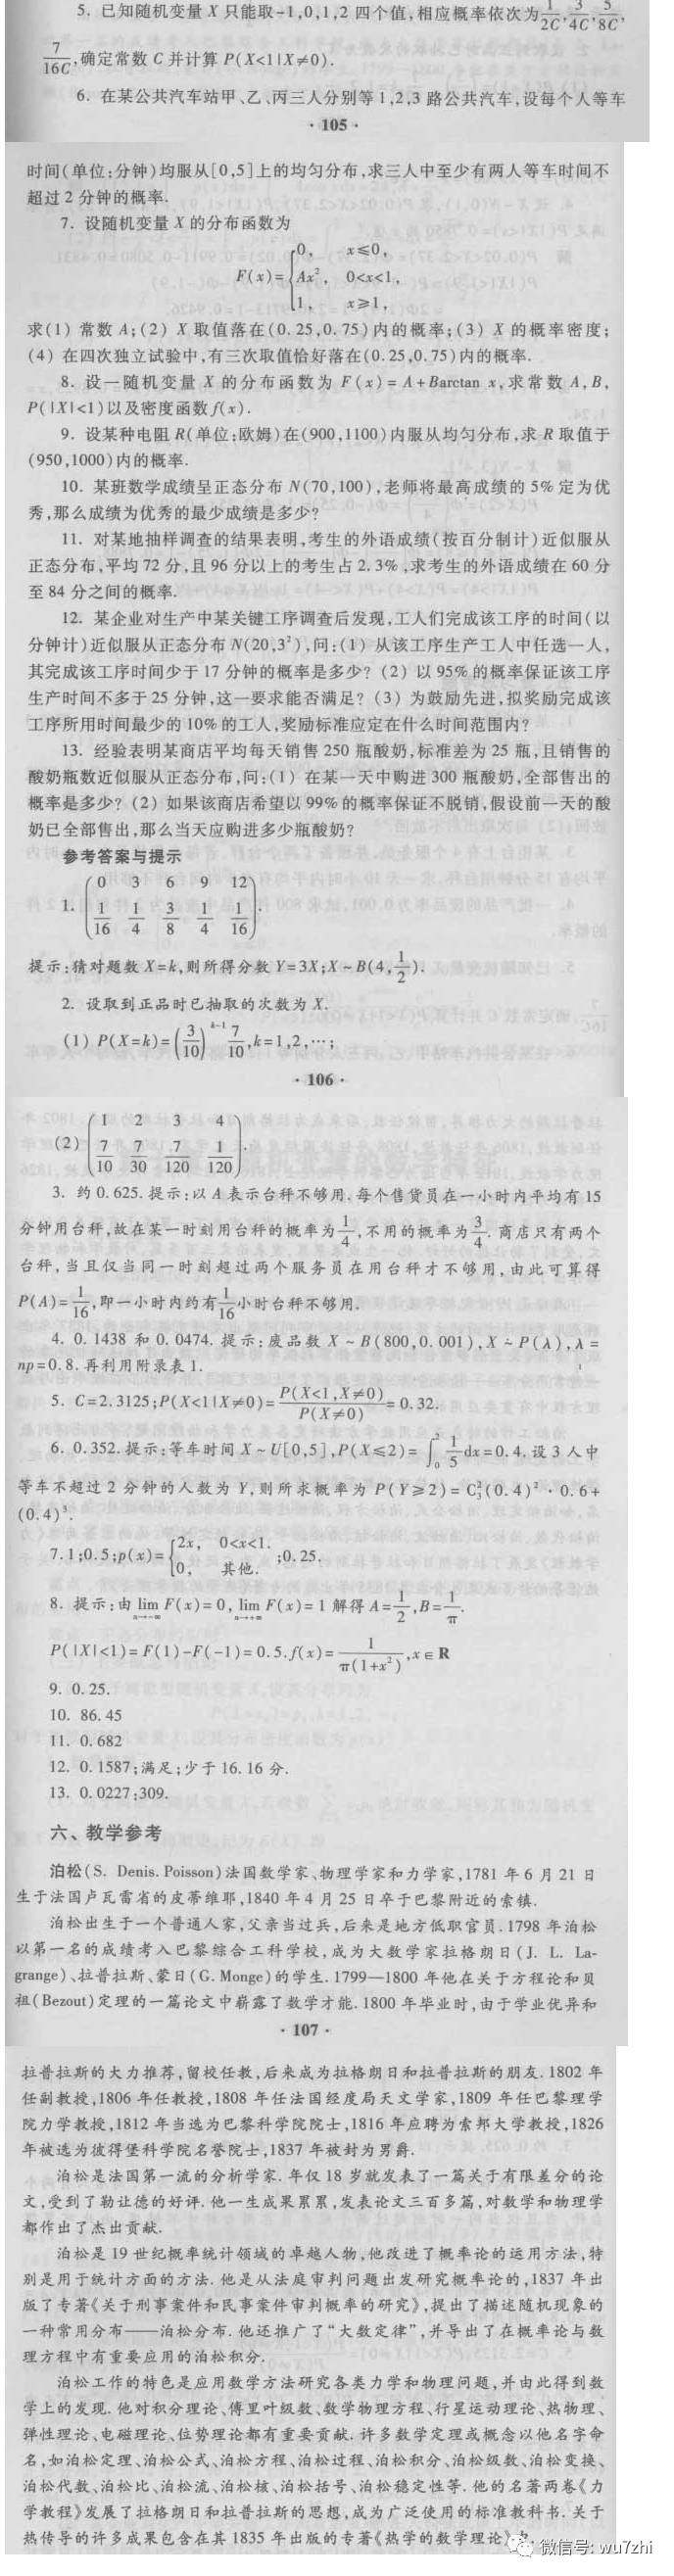 5. 已知随机变量 X 只能取-1,0,1,2 四个值,相应概率依次为 1/2C, 3/4C, 5/8C,
7/16C,确定常数 C 并计算 P(X<1|X≠0).
6. 在某公共汽车站甲、乙、丙三人分别等 1,2,3 路公共汽车,设每个人等车
· 105 ·
时间(单位:分钟)均服从[0,5]上的均匀分布,求三人中至少有两人等车时间不
超过 2 分钟的概率.
7. 设随机变量 X 的分布函数为
F(x)={0, x≤0,
Ax², 0<x<1,
1, x≥1,
求(1) 常数 A;(2) X 取值落在(0.25,0.75)内的概率;(3) X 的概率密度;
(4) 在四次独立试验中,有三次取值恰好落在(0.25,0.75)内的概率.
8. 设一随机变量 X 的分布函数为 F(x)=A+Barctan x,求常数 A,B,
P(|X|<1)以及密度函数 f(x).
9. 设某种电阻 R(单位:欧姆)在(900,1100)内服从均匀分布,求 R 取值于
(950,1000)内的概率.
10. 某班数学成绩呈正态分布 N(70,100),老师将最高成绩的 5% 定为优
秀,那么成绩为优秀的最少成绩是多少?
11. 对某地抽样调查的结果表明,考生的外语成绩(按百分制计)近似服从
正态分布,平均 72 分,且 96 分以上的考生占 2.3%,求考生的外语成绩在 60 分
至 84 分之间的概率.
12. 某企业对生产中某关键工序调查后发现,工人们完成该工序的时间(以
分钟计)近似服从正态分布 N(20,3²),问:(1) 从该工序生产工人中任选一人,
其完成该工序时间少于 17 分钟的概率是多少? (2) 以 95% 的概率保证该工序
生产时间不多于 25 分钟,这一要求能否满足? (3) 为鼓励先进,拟奖励完成该
工序所用时间最少的 10% 的工人,奖励标准应定在什么时间范围内?
13. 经验表明某商店平均每天销售 250 瓶酸奶,标准差为 25 瓶,且销售的
酸奶瓶数近似服从正态分布,问:(1) 在某一天中购进 300 瓶酸奶,全部售出的
概率是多少? (2) 如果该商店希望以 99% 的概率保证不脱销,假设前一天的酸
奶已全部售出,那么当天应购进多少瓶酸奶?
参考答案与提示
1. (0 3 6 9 12
1/16 1/4 3/8 1/4 1/16).
提示:猜对题数 X=k,则所得分数 Y=3X;X~B(4,1/2).
2. 设取到正品时已抽取的次数为 X.
(1) P(X=k)=(3/10)^(k-1) 7/10,k=1,2,…;
· 106 ·
(2) (1 2 3 4
7/10 7/30 7/120 1/120).
3. 约 0.625. 提示:以 A 表示台秤不够用. 每个售货员在一小时内平均有 15
分钟用台秤,故在某一时刻用台秤的概率为1/4,不用的概率为3/4. 商店只有两个
台秤,当且仅当同一时刻超过两个服务员在用台秤才不够用,由此可算得
P(A)=1/16,即一小时内约有1/16小时台秤不够用.
4. 0.1438 和 0.0474. 提示:废品数 X~B(800,0.001),X~P(λ),λ=
np=0.8. 再利用附录表 1.
5. C=2.3125;P(X<1|X≠0)=P(X<1,X≠0)/P(X≠0)=0.32.
6. 0.352. 提示:等车时间 X~U[0,5],P(X≤2)=∫₀² 1/5 dx=0.4. 设 3 人中
等车不超过 2 分钟的人数为 Y,则所求概率为 P(Y≥2)=C₃²(0.4)²·0.6+
(0.4)³.
7. 1;0.5;p(x)={2x, 0<x<1.
0, 其他. ;0.25.
8. 提示:由 lim(n→-∞) F(x)=0, lim(n→+∞) F(x)=1 解得 A=1/2,B=1/π.
P(|X|<1)=F(1)-F(-1)=0.5. f(x)=1/π(1+x²),x∈R
9. 0.25.
10. 86.45
11. 0.682
12. 0.1587;满足;少于 16.16 分.
13. 0.0227;309.
六、教学参考
泊松(S. Denis. Poisson)法国数学家、物理学家和力学家,1781 年 6 月 21 日
生于法国卢瓦雷省的皮蒂维耶,1840 年 4 月 25 日卒于巴黎附近的索镇.
泊松出生于一个普通人家,父亲当过兵,后来是地方低职官员. 1798 年泊松
以第一名的成绩考入巴黎综合工科学校,成为大数学家拉格朗日(J. L. La-
grange)、拉普拉斯、蒙日(G. Monge)的学生. 1799—1800 年他在关于方程论和贝
祖(Bezout)定理的一篇论文中崭露了数学才能. 1800 年毕业时,由于学业优异和
· 107 ·
拉普拉斯的大力推荐,留校任教,后来成为拉格朗日和拉普拉斯的朋友. 1802 年
任副教授,1806 年任教授,1808 年任法国经度局天文学家,1809 年任巴黎理学
院力学教授,1812 年当选为巴黎科学院院士,1816 年应聘为索邦大学教授,1826
年被选为彼得堡科学院名誉院士,1837 年被封为男爵.
泊松是法国第一流的分析学家. 年仅 18 岁就发表了一篇关于有限差分的论
文,受到了勒让德的好评. 他一生成果累累,发表论文三百多篇,对数学和物理学
都作出了杰出贡献.
泊松是 19 世纪概率统计领域的卓越人物,他改进了概率论的运用方法,特
别是用于统计方面的方法. 他是从法庭审判问题出发研究概率论的,1837 年出
版了专著《关于刑事案件和民事案件审判概率的研究》,提出了描述随机现象的
一种常用分布——泊松分布. 他还推广了“大数定律”,并导出了在概率论与数
理方程中有重要应用的泊松积分.
泊松工作的特色是应用数学方法研究各类力学和物理问题,并由此得到数
学上的发现. 他对积分理论、傅里叶级数、数学物理方程、行星运动理论、热物理、
弹性理论、电磁理论、位势理论都有重要贡献. 许多数学定理或概念以他名字命
名,如泊松定理、泊松公式、泊松方程、泊松过程、泊松积分、泊松级数、泊松变换、
泊松代数、泊松比、泊松流、泊松核、泊松括号、泊松稳定性等. 他的名著两卷《力
学教程》发展了拉格朗日和拉普拉斯的思想,成为广泛使用的标准教科书. 关于
热传导的许多成果包含在其 1835 年出版的专著《热学的数学理论》
微信号: wu7zhi